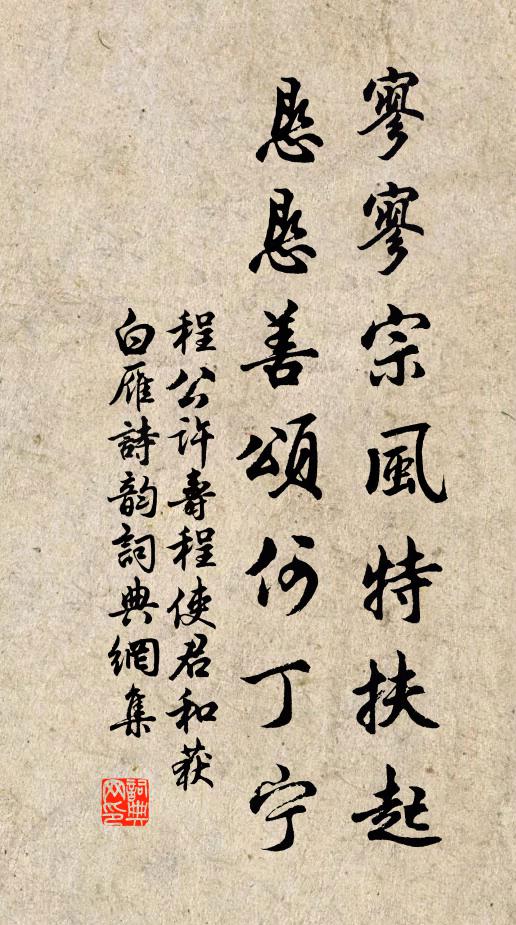 寥寥宗風特扶起
恳恳善頌何丁宁
程公许壽程使君和获
白雁詩韵詞典網集
詞典
网印